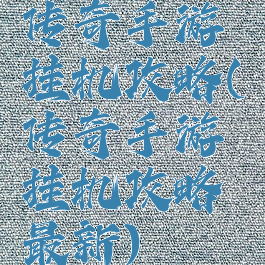 传奇手游
挂机攻略(
传奇手游
挂机攻略
最新)